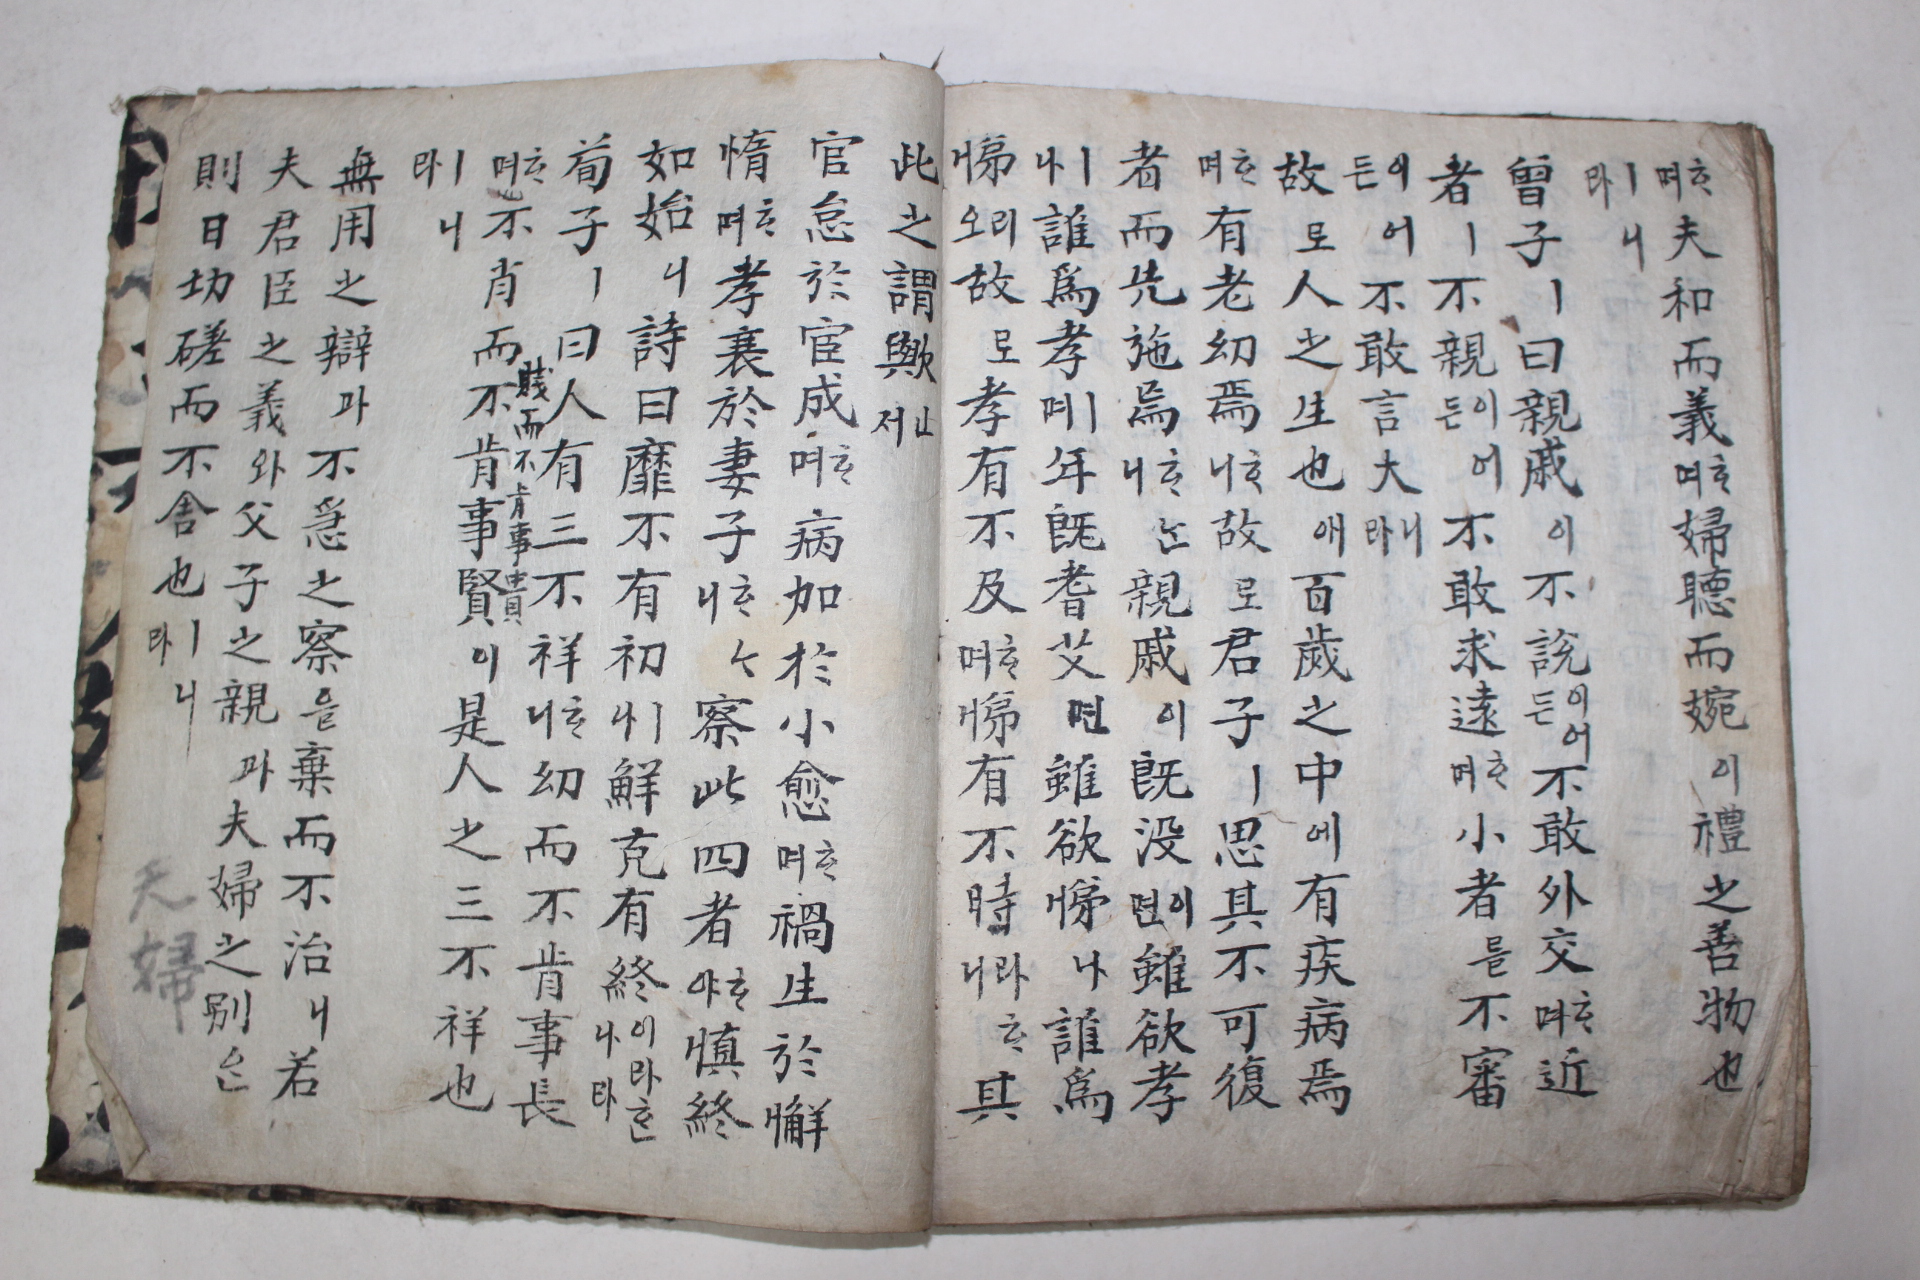 ᄒᆞ며夫和而義ᄒᆞ며婦聽而婉이禮之善物也
ㅣ니라
曾子ㅣ曰親戚이不說이어든不敢外交ᄒᆞ며近
者ㅣ不親이어든不敢求遠ᄒᆞ며小者를不審
이어든不敢言大ㅣ니라
故로人之生也애百歲之中에有疾病焉
ᄒᆞ며有老幼焉ᄒᆞ니故로君子ㅣ思其不可復
者而先施焉ᄒᆞᄂᆞ니親戚이旣沒이면雖欲孝
ㅣ나誰爲孝ㅣ며年旣耆艾면雖欲悌나誰爲
悌리오故로孝有不及ᄒᆞ며悌有不時라ᄒᆞ니其
此之謂歟ㅣㄴ져
官怠於宦成ᄒᆞ며病加於小愈ᄒᆞ며禍生於懈
惰ᄒᆞ며孝衰於妻子ᄒᆞᄂᆞ니察此四者ᄒᆞ야愼終
如始니詩曰靡不有初ㅣ나鮮克有終이라ᄒᆞᆫ나라
荀子ㅣ曰人有三不祥ᄒᆞ니幼而不肯事長
賤而不肯事貴
ᄒᆞ며不肖而不肯事賢이是人之三不祥也
ㅣ니라
無用之辯과不急之察을棄而不治니若
夫君臣之義와父子之親과夫婦之別은
則日切磋而不舍也ㅣ니라